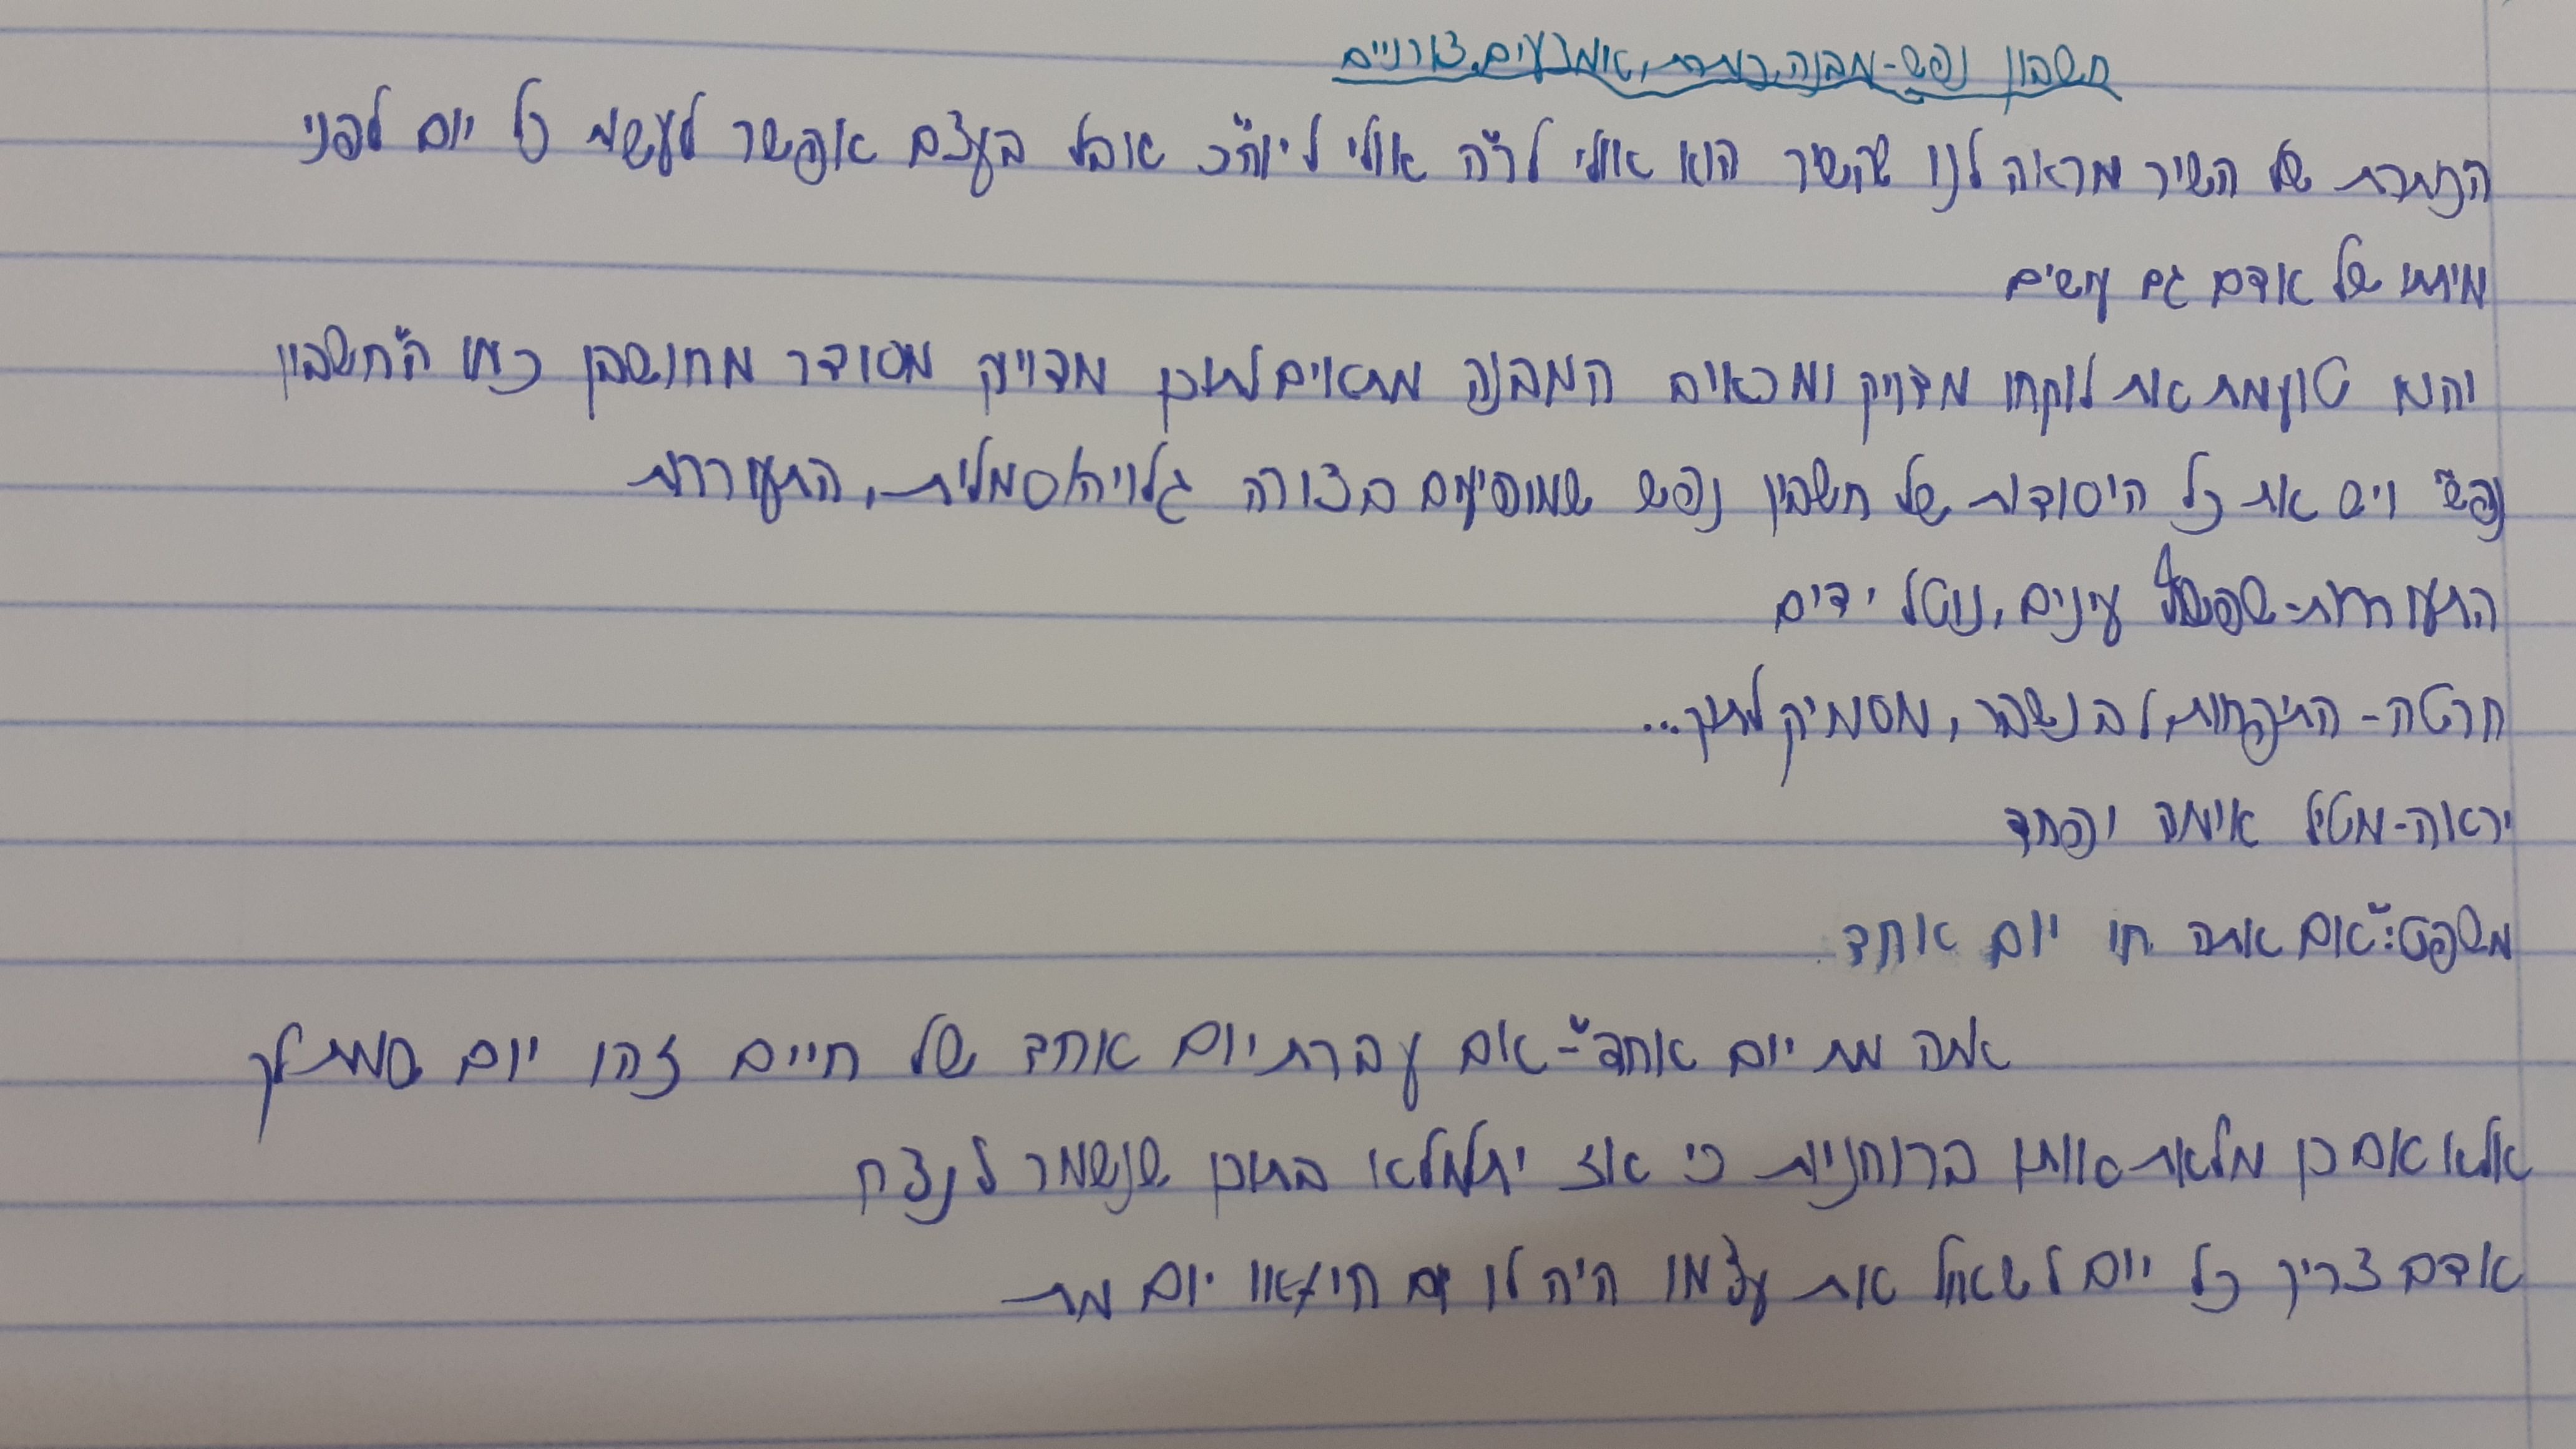 חשבון נפש-מבנה, כותרת, אמצעים צורניים
הכותרת של השיר מראה לנו שהשיר הוא אולי לר"ה אולי ליוה"כ אבל בעצם אפשר לעשות כל יום לפני
מיתתו של אדם גם עושים
והוא טועמת את לוקחו מדויק ומכאוים המבנה מתאים לתוכן מדויק מסודר מחושבן כמו ה"חשבון
נפש" ויש את כל היסודות של חשבון נפש שמופיעים בצורה גלויה/סמלית, התעוררות
התעוררות-שפשוף עינים, נוטל ידים
חרטה- התיפחות, לב נשבר, מסמיק לתוך...
יראה-מטיל אימה ופחד
משפט:"אם אתה חי יום אחד
אתה מת יום אחד"-אם עברת יום אחד של חיים זהו יום שמת לך
אלא אם כן מלאת אותו ברוחניות כי אז יתמלא בתוכן שנשמר לנצח
אדם צריך כל יום לשאול את עצמו היה לו יום חי או יום מת